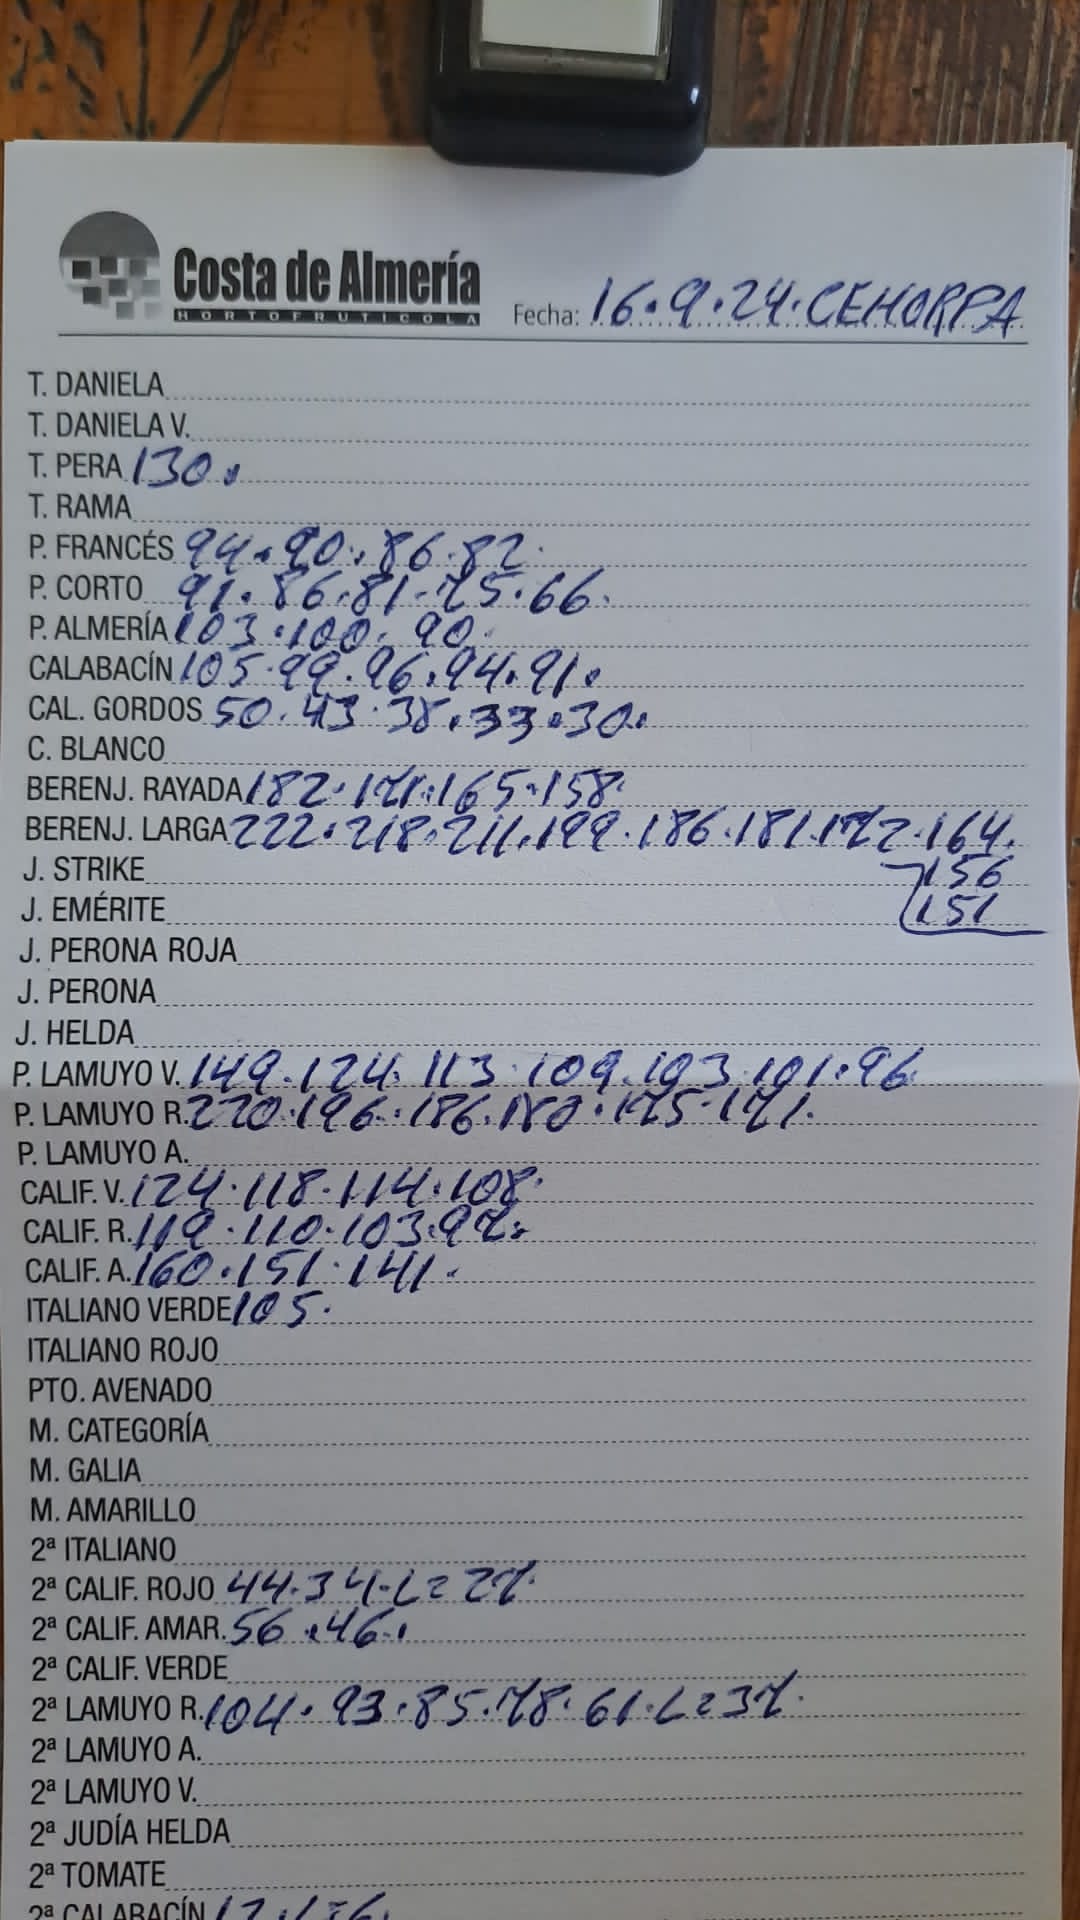 Costa de Almería
HORTOFRUTICOLA
Fecha: 16.9.24.CEHORPA
T. DANIELA
T. DANIELA V.
T. PERA 130.
T. RAMA
P. FRANCÉS 94.90.86.82.
P. CORTO 91.86.81.75.66.
P. ALMERÍA 103.100.90.
CALABACÍN 105.99.96.94.91.
CAL. GORDOS 50.43.38.33.30.
C. BLANCO
BERENJ. RAYADA 182.171.165.158.
BERENJ. LARGA 222.218.211.199.186.181.172.164.
J. STRIKE 156
J. EMÉRITE 151
J. PERONA ROJA
J. PERONA
J. HELDA
P. LAMUYO V. 149.124.113.109.103.101.96.
P. LAMUYO R. 220.196.186.180.175.171.
P. LAMUYO A.
CALIF. V. 124.118.114.108.
CALIF. R. 119.110.103.97.
CALIF. A. 160.151.141.
ITALIANO VERDE 105.
ITALIANO ROJO
PTO. AVENADO
M. CATEGORÍA
M. GALIA
M. AMARILLO
2ª ITALIANO
2ª CALIF. ROJO 44.34.L=27.
2ª CALIF. AMAR. 56.46.
2ª CALIF. VERDE
2ª LAMUYO R. 104.93.85.78.61.L=37.
2ª LAMUYO A.
2ª LAMUYO V.
2ª JUDÍA HELDA
2ª TOMATE
2ª CALABACÍN